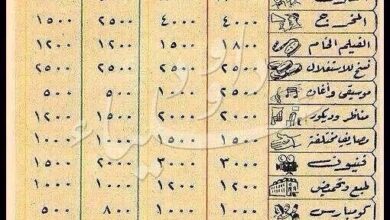 المخرج ٤٠٠٠ ٤٠٠٠ ٢٥٠٠ ١٥٠٠
الفيلم الخام ١٨٠٠ ١٥٠٠ ١٢٠٠ ١٢٠٠
نسخ للاستغلال ٢٥٠٠ ٢٥٠٠ ٢٥٠٠ ٢٥٠٠
موسيقى وأغان ٢٠٠٠ ١٥٠٠ ٥٠٠ ٥٠٠
مناظر وديكور ٢٠٠٠ ٢٠٠٠ ١٥٠٠ ١٢٠٠
مصاريف مختلفة ١٥٠٠ ١٥٠٠ ١٠٠٠ ١٠٠٠
فنيون ٣٠٠٠ ٣٠٠٠ ٢٠٠٠ ١٥٠٠
طبع وتحميض ١٢٠٠ ١٢٠٠ ١٠٠٠ ١٠٠٠
كومبارس ١٠٠٠ ١٠٠٠ ٨٠٠ ٥٠٠